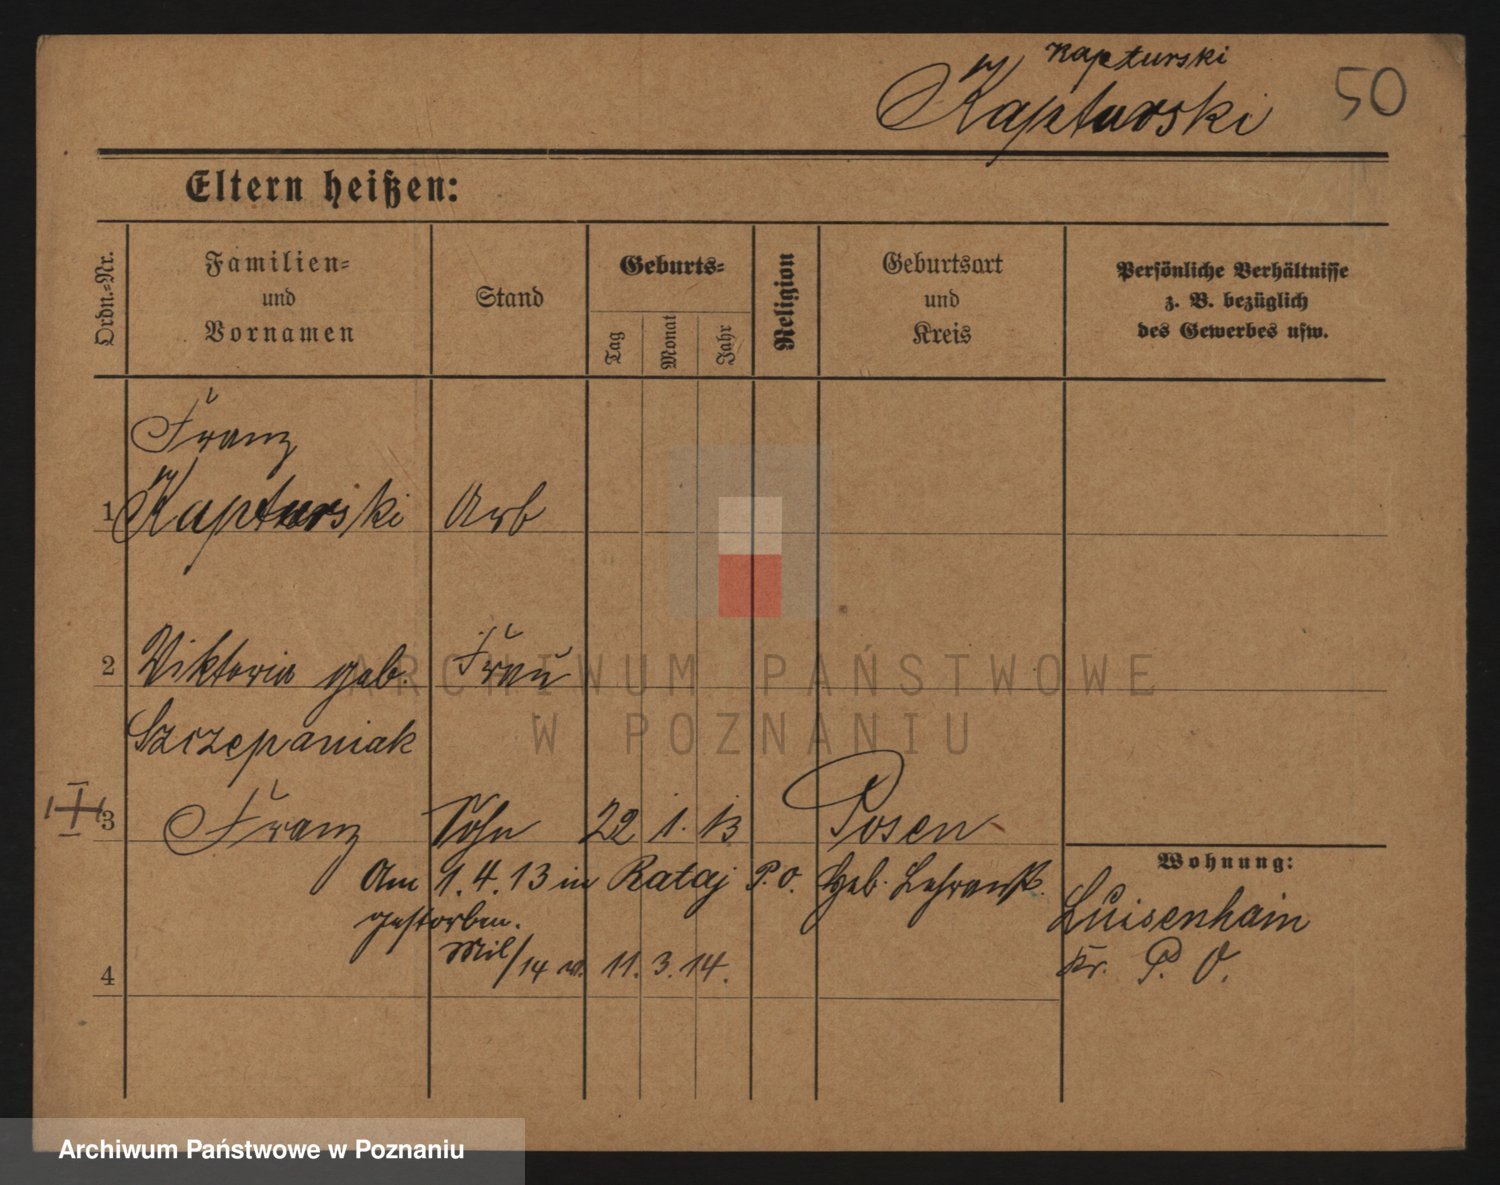 Kapturski
Kapturski
50
Eltern heißen:
Ordn.-Nr.
Familien-
und
Vornamen
Stand
Geburts-
Tag
Monat
Jahr
Religion
Geburtsort
und
Kreis
Persönliche Verhältnisse
z. B. bezüglich
des Gewerbes usw.
Franz
1 Kapturski Arb
2 Viktoria geb. Frau
Szczepaniak
3 Franz Sohn 22 1. 13 Posen
Am 1.4.13 in Rataj P.O. Geb.
gestorben.
Mil/14 v. 11. 3. 14.
4
Wohnung:
Luisenhain
Kr. P. O.
ARCHIWUM PAŃSTWOWE
W POZNANIU
Archiwum Państwowe w Poznaniu